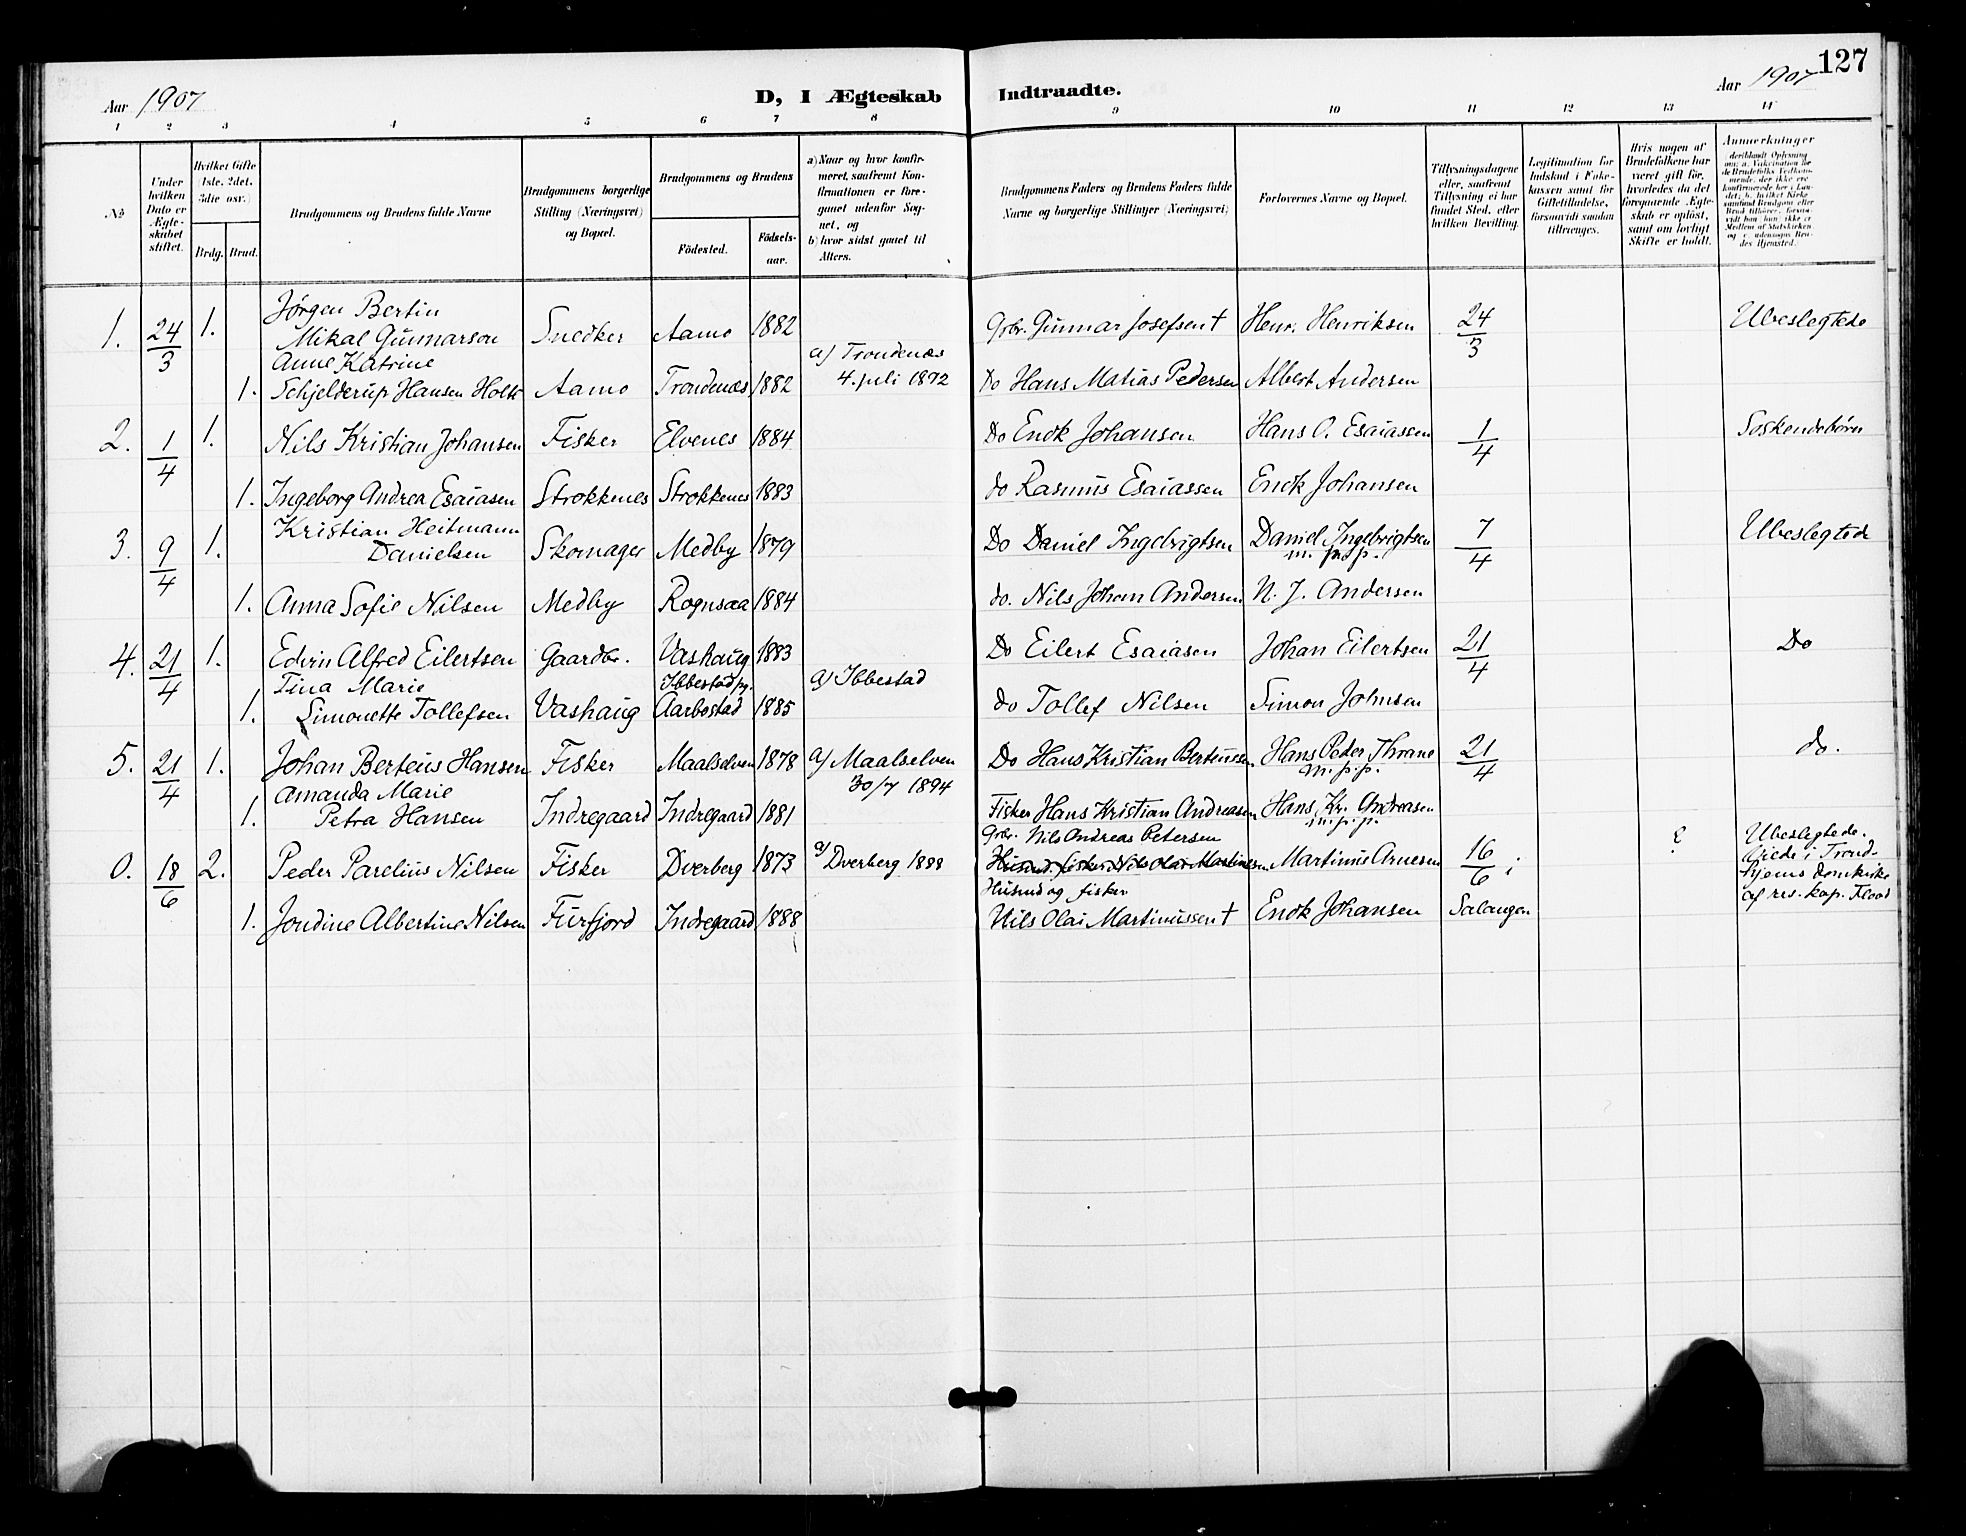 127
Aar 1907 D, I Ægteskab Indtraadte. Aar 1907
1 2 3 4 5 6 7 8 9 10 11 12 13 14
№
Under hvilken Dato er Ægteskabet stiftet.
Hvilket Gifte (1ste, 2det, 3die osv.)
Brdg. Brud.
Brudgommens og Brudens fulde Navne
Brudgommens borgerlige Stilling (Næringsvei) og Bopæl.
Brudgommens og Brudens
Födested. Födsels-aar.
a) Naar og hvor konfirmeret, saafremt Konfirmationen er foregaaet udenfor Sognet, og
b) hvor sidst gaaet til Alters.
Brudgommens Faders og Brudens Faders fulde Navne og borgerlige Stillinger (Næringsvei)
Forlovernes Navne og Bopæl.
Tillysningsdagene eller, saafremt Tillysning ei har fundet Sted, efter hvilken Bevilling.
Legitimation for Indskud i Enkekassen samt for Giftetilladelse, forsaavidt saadan tiltrænges.
Hvis nogen af Brudefolkene har været gift för, hvorledes da det foregaaende Ægteskab er oplöst, samt om lovligt Skifte er holdt.
Anmerkninger
Jörgen Bertin
1. 24/3 1. Mikal Gunnarson Snedker Aamo 1882 Grbr. Gunnar Josefsen † Henr. Henriksen 24/3 Ubeslegtede
Anne Katrine a) Trondenæs
1. Schjelderup Hansen Holte Aamo Trondenæs 1882 4. juli 1872 Do Hans Matias Pedersen Albert Andersen
2. 1/4 1. Nils Kristian Johansen Fisker Elvenes 1884 Do Enok Johansen Hans O. Esaiassen 1/4 Söskendebörn
1. Ingeborg Andrea Esaiasen Strokkenes Strokkenes 1883 do Rasmus Esaiassen Enok Johansen
Kristian Heitmann
3. 9/4 1. Danielsen Skomager Medby 1879 Do Daniel Ingebrigtsen Daniel Ingebrigtsen 7/4 Ubeslegtede
m. p. p.
1. Anna Sofie Nilsen Medby Rognsaa 1884 do. Nils Johan Andersen N. J. Andersen
4. 21/4 1. Edvin Alfred Eilertsen Gaardbr. Vashaug 1883 Do Eilert Esaiasen Johan Eilertsen 21/4 Do
Tina Marie Ibbestad pg. a) Ibbestad
1. Simonette Tollefsen Vashaug Aarbostad 1885 do Tollef Nilsen Simon Johnsen
5. 21/4 1. Johan Berteus Hansen Fisker Maalselven 1878 a) Maalselven Do Hans Kristian Berteussen Hans Peder Thrane 21/4 do.
Amanda Marie 30/7 1894 m. p. p.
1. Petra Hansen Indregaard Indregaard 1881 Fisker Hans Kristian Andreasen Hans Kr. Andreasen
m. p. p.
Grbr. Nils Andreas Petersen
0. 18/6 2. Peder Parelius Nilsen Fisker Dverberg 1873 a) Dverberg 1888 Husmd. fisker Nils Olai Martinussen Martinus Arnesen 16/6 i ? Ubeslegtede.
Viede i Trondhjems domkirke
Husmd og fisker af res. kap. Flood
1. Jondine Albertine Nilsen Finfjord Indregaard 1888 Nils Olai Martinussen † Enok Johansen Salangen